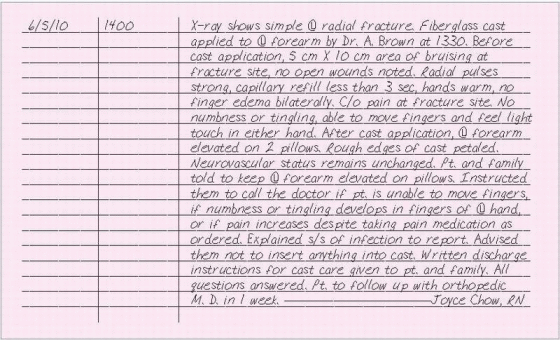 6/5/10 1400 X-ray shows simple Ⓛ radial fracture. Fiberglass cast
applied to Ⓛ forearm by Dr. A. Brown at 1330. Before
cast application, 5 cm X 10 cm area of bruising at
fracture site, no open wounds noted. Radial pulses
strong, capillary refill less than 3 sec, hands warm, no
finger edema bilaterally. C/o pain at fracture site. No
numbness or tingling, able to move fingers and feel light
touch in either hand. After cast application, Ⓛ forearm
elevated on 2 pillows. Rough edges of cast petaled.
Neurovascular status remains unchanged. Pt. and family
told to keep Ⓛ forearm elevated on pillows. Instructed
them to call the doctor if pt. is unable to move fingers,
if numbness or tingling develops in fingers of Ⓛ hand,
or if pain increases despite taking pain medication as
ordered. Explained s/s of infection to report. Advised
them not to insert anything into cast. Written discharge
instructions for cast care given to pt. and family. All
questions answered. Pt. to follow up with orthopedic
M. D. in 1 week. ——————— Joyce Chow, RN